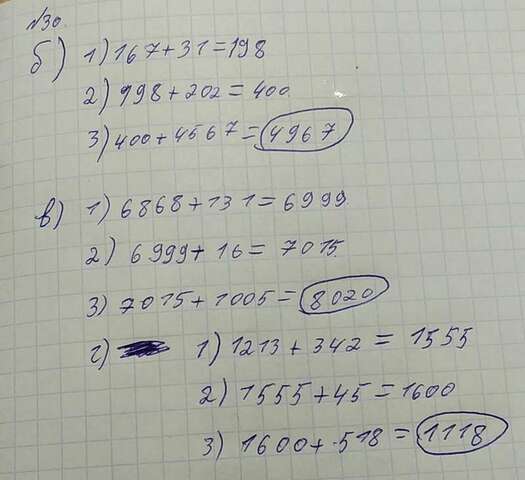 №30.
б) 1) 167+31=198
2) 998+202=400
3) 400+4567=4967
в) 1) 6868+131=6999
2) 6999+16=7015
3) 7015+1005=8020
г) 1) 1213+342=1555
2) 1555+45=1600
3) 1600+518=1118